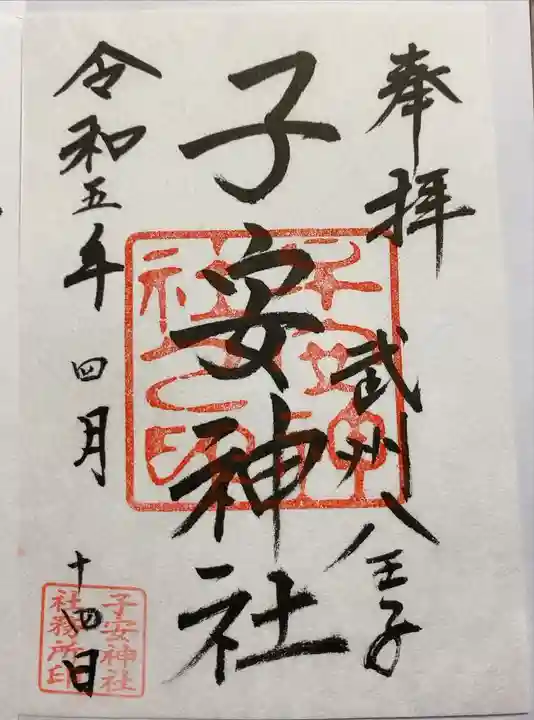 奉拝
武州八王子
子安神社
子安神社之印
令和五年 四月 十四日
子安神社
社務所印